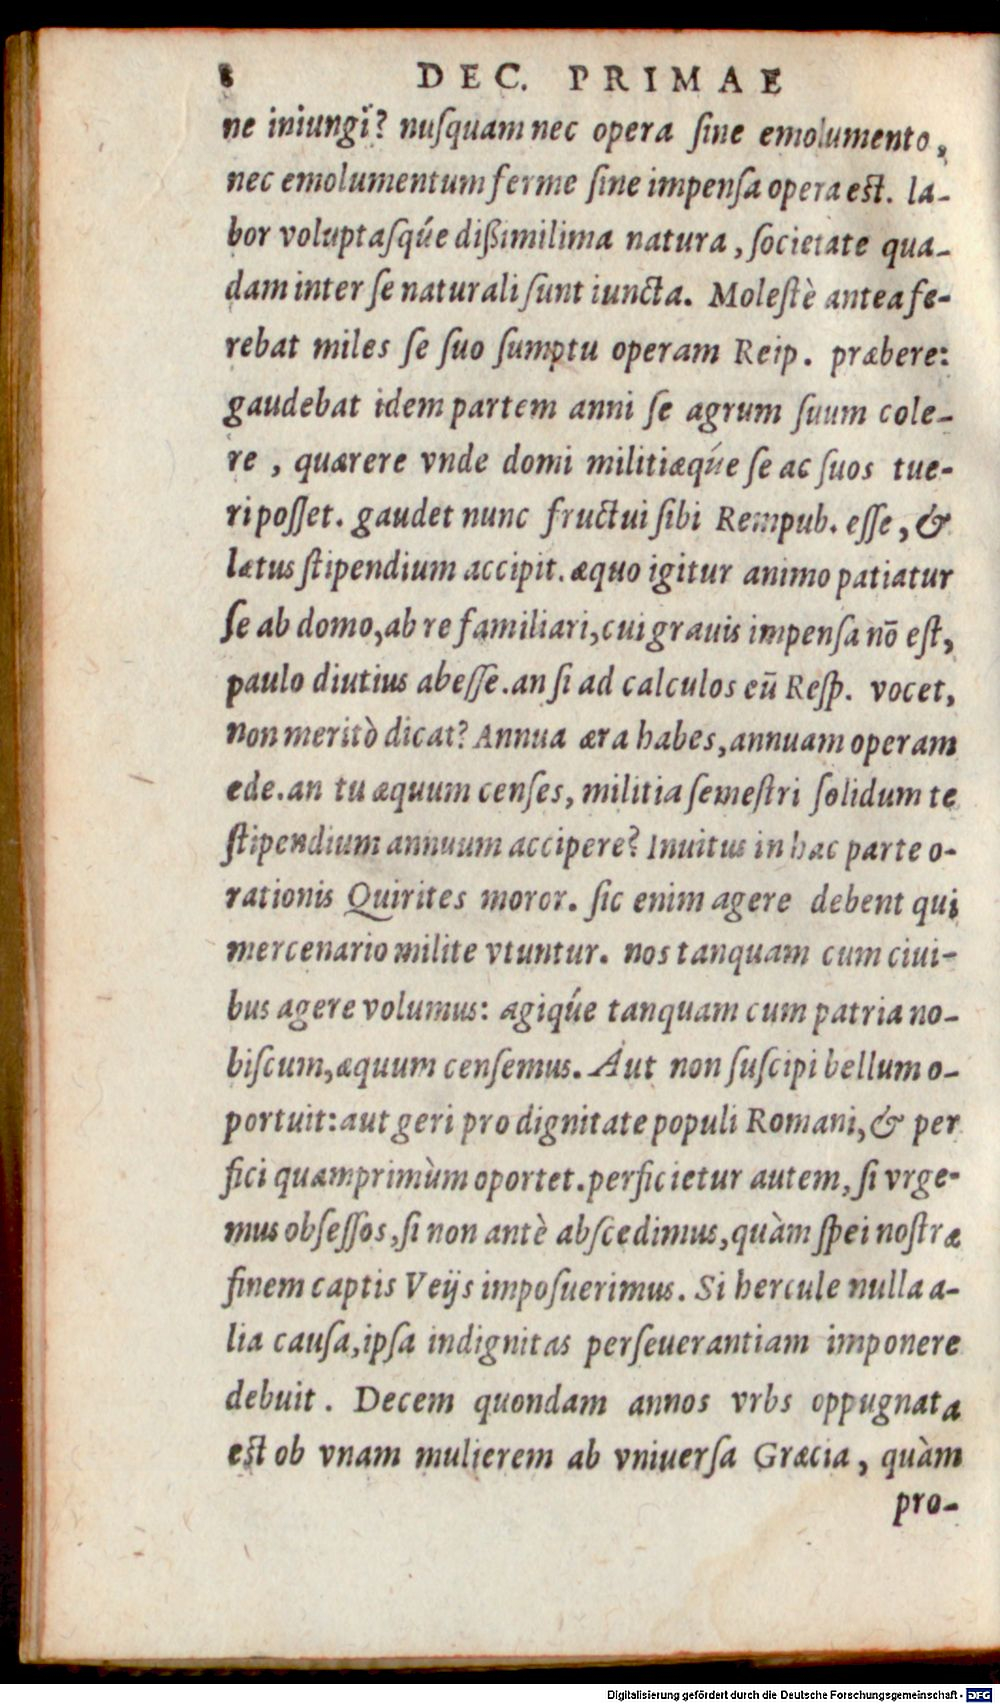 8 DEC. PRIMAE
ne iniungi? nuſquam nec opera ſine emolumento,
nec emolumentum ferme ſine impenſa opera est. la-
bor voluptaſq́ue dißimilima natura, ſocietate qua-
dam inter ſe naturali ſunt iuncta. Moleſtè antea fe-
rebat miles ſe ſuo ſumptu operam Reip. præbere:
gaudebat idem partem anni ſe agrum ſuum cole-
re, quærere vnde domi militiæq́ue ſe ac ſuos tue-
ri poſſet. gaudet nunc fructui ſibi Rempub. eſſe, &
lætus ſtipendium accipit. æquo igitur animo patiatur
ſe ab domo, ab re familiari, cui grauis impenſa nō eſt,
paulo diutius abeſſe. an ſi ad calculos eū Reſp. vocet,
non meritò dicat? Annua æra habes, annuam operam
ede. an tu æquum cenſes, militia ſemeſtri ſolidum te
ſtipendium annuum accipere? Inuitus in hac parte o-
rationis Quirites moror. ſic enim agere debent qui
mercenario milite vtuntur. nos tanquam cum ciui-
bus agere volumus: agiq́ue tanquam cum patria no-
biſcum, æquum cenſemus. Aut non ſuſcipi bellum o-
portuit: aut geri pro dignitate populi Romani, & per
fici quamprimùm oportet. perficietur autem, ſi vrge-
mus obſeſſos, ſi non antè abſcedimus, quàm ſpei noſtræ
finem captis Veijs impoſuerimus. Si hercule nulla a-
lia cauſa, ipſa indignitas perſeuerantiam imponere
debuit. Decem quondam annos vrbs oppugnata
est ob vnam mulierem ab vniuerſa Græcia, quàm
pro-
Digitalisierung gefördert durch die Deutsche Forschungsgemeinschaft - DFG